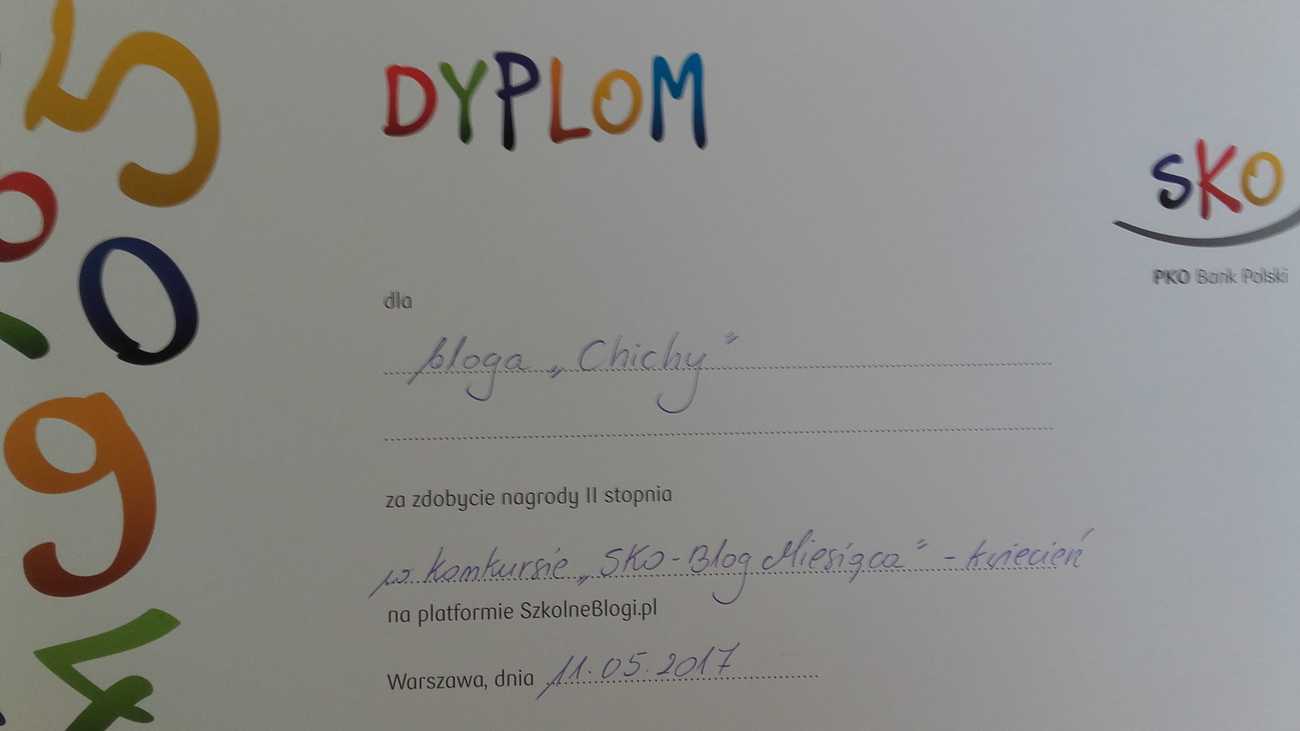 DYPLOM
SKO
PKO Bank Polski
dla
bloga „Chichy”
za zdobycie nagrody II stopnia
w konkursie „SKO-Blog Miesiąca” - kwiecień
na platformie SzkolneBlogi.pl
Warszawa, dnia 11.05.2017
5
0
9
4